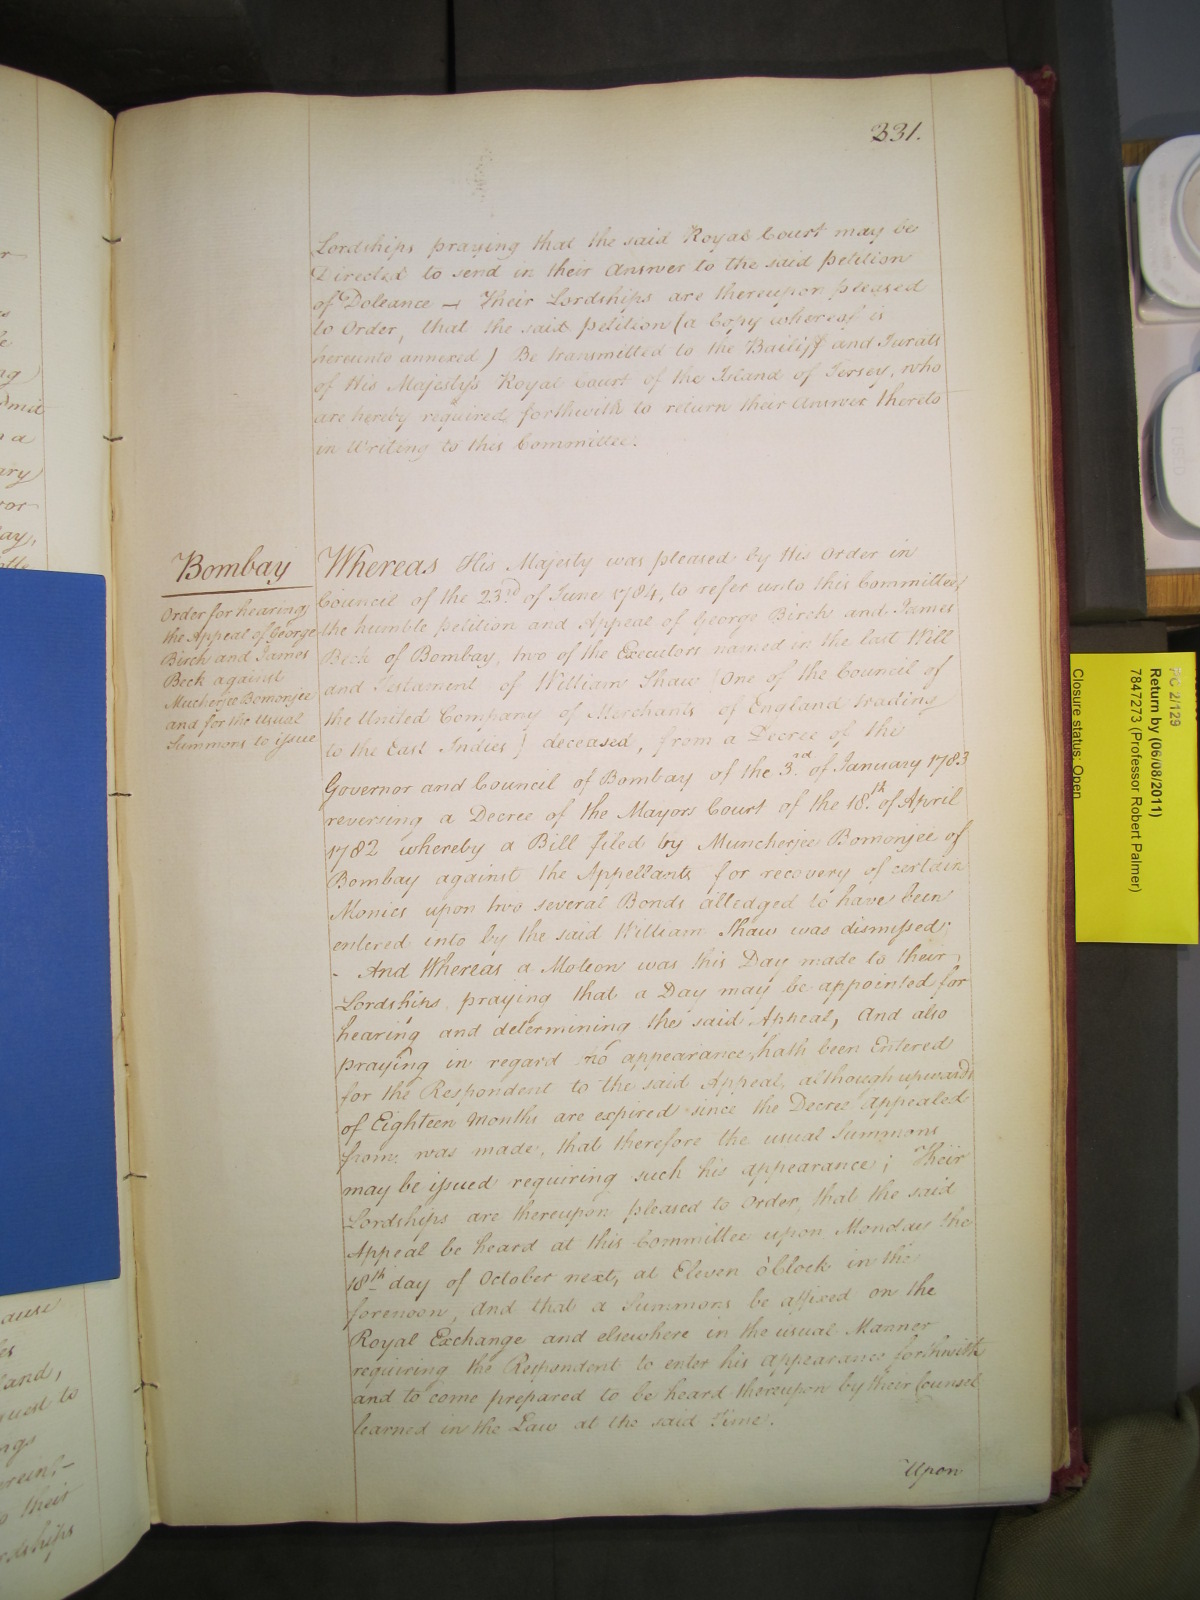 331.
Lordships praying that the said Royal Court may be
Directed to send in their Answer to the said petition
of Doleance - Their Lordships are thereupon pleased
to Order, that the said petition (a Copy whereof is
hereunto annexed) Be transmitted to the Bailiff and Jurats
of His Majesty's Royal Court of the Island of Jersey, who
are hereby required forthwith to return their Answer thereto
in Writing to this Committee.
Bombay
Order for hearing
the Appeal of George
Birch and James
Beck against
Muncherjee Bomonjee
and for the usual
Summons to issue
Whereas His Majesty was pleased by His Order in
Council of the 23rd of June 1784, to refer unto this Committee
the humble petition and Appeal of George Birch and James
Beck of Bombay, two of the Executors named in the last Will
and Testament of William Shaw (One of the Council of
the United Company of Merchants of England trading
to the East Indies) deceased, from a Decree of the
Governor and Council of Bombay of the 3rd of January 1783
reversing a Decree of the Mayors Court of the 18th of April
1782 whereby a Bill filed by Muncherjee Bomonjee of
Bombay against the Appellants for recovery of certain
Monies upon two several Bonds alledged to have been
entered into by the said William Shaw was dismissed;
- And Whereas a Motion was this Day made to their
Lordships praying that a Day may be appointed for
hearing and determining the said Appeal, And also
praying in regard no appearance hath been Entered
for the Respondent to the said Appeal, although upwards
of Eighteen Months are expired since the Decree appealed
from was made, that therefore the usual Summons
may be issued requiring such his appearance; Their
Lordships are thereupon pleased to Order, that the said
Appeal be heard at this Committee upon Monday the
18th day of October next, at Eleven o'Clock in the
forenoon, And that a Summons be affixed on the
Royal Exchange and elsewhere in the usual Manner
requiring the Respondent to enter his appearance forthwith
and to come prepared to be heard thereupon by their Counsel
learned in the Law at the said Time.
Upon
PC 2/129
Return by (06/08/2011)
7847273 (Professor Robert Palmer)
Closure status: Open